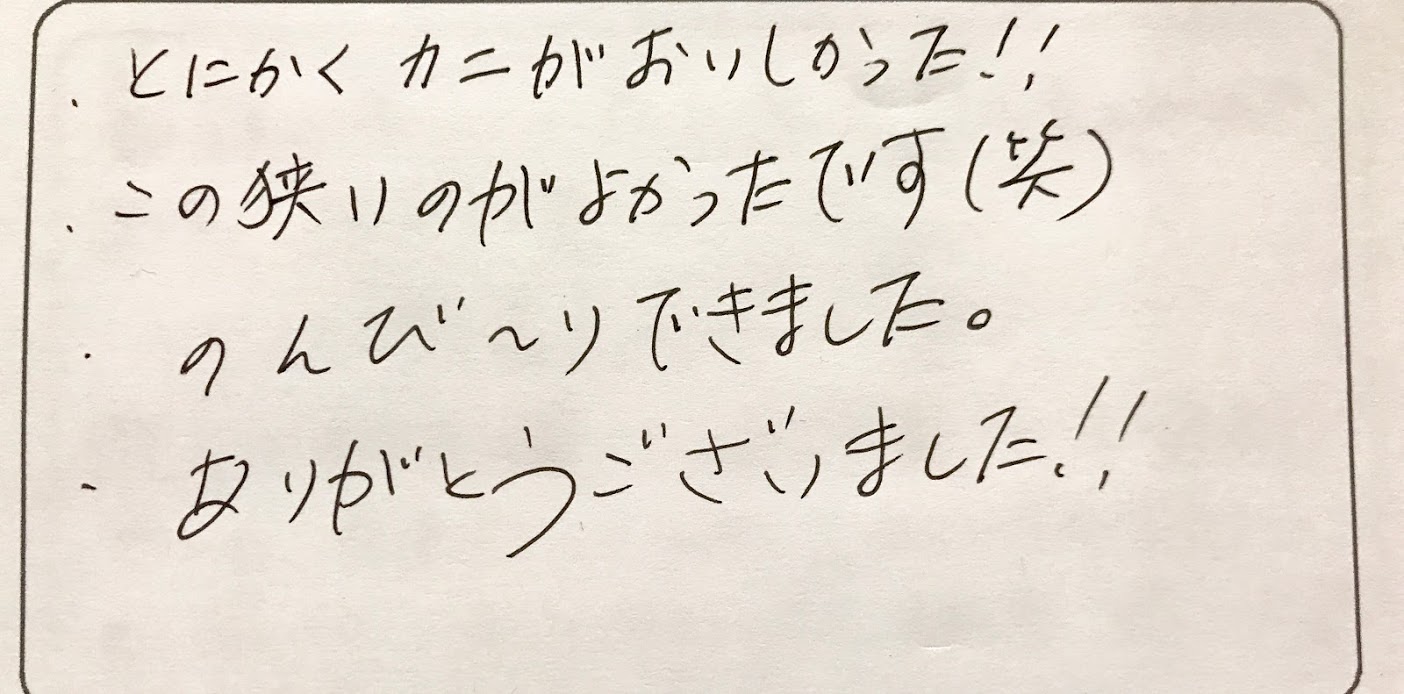 ・とにかくカニがおいしかった!!
・この狭いのがよかったです(笑)
・のんび〜りできました。
・ありがとうございました!!